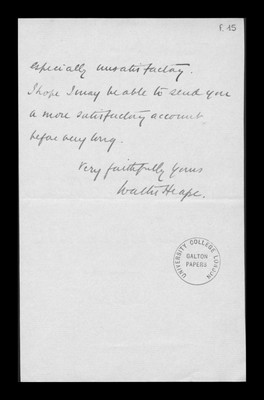 F. 15
especially unsatisfactory.
I hope I may be able to send you
a more satisfactory account
before very long.
Very faithfully yours
Walter Heape.
UNIVERSITY COLLEGE LONDON
GALTON
PAPERS